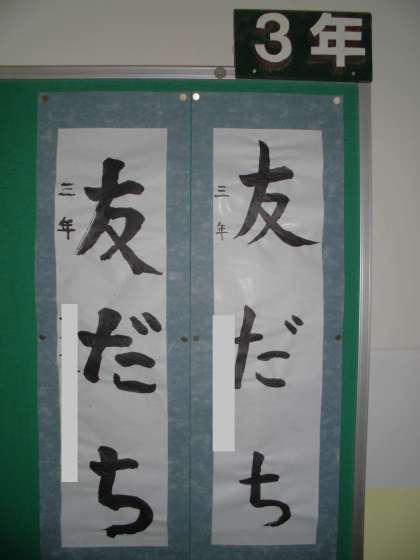 3年
友だち
三年
友だち
三年